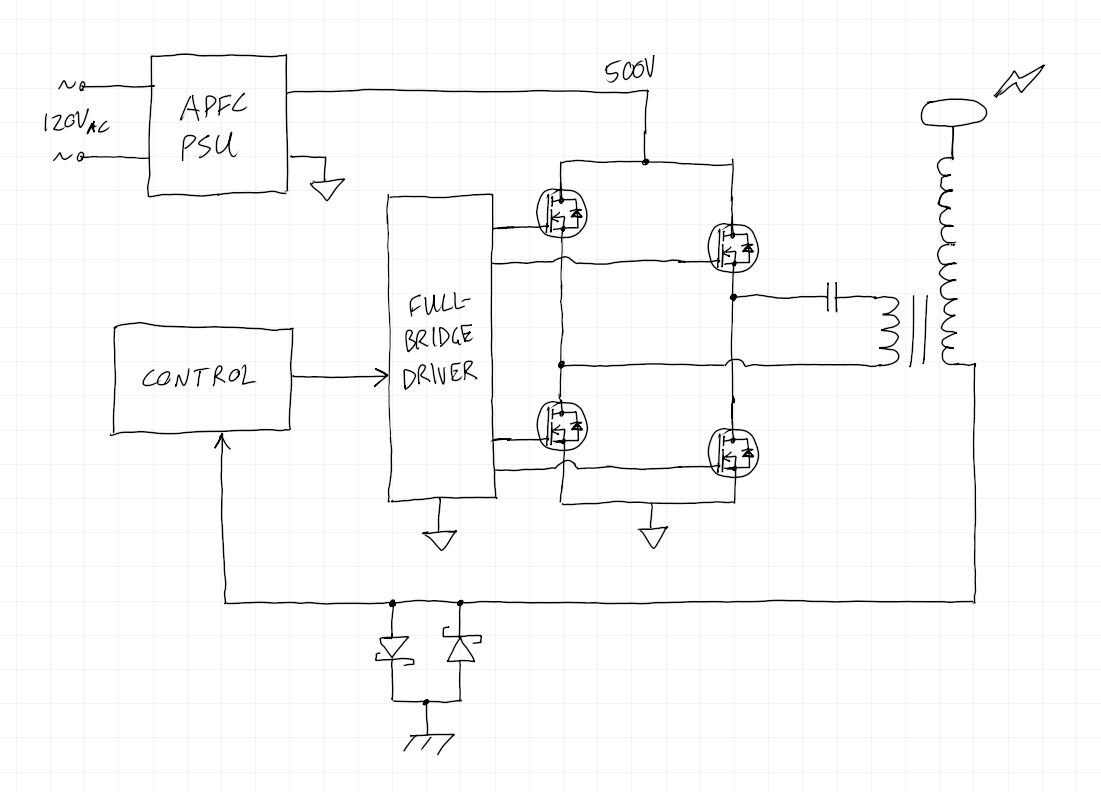 120VAC
APFC
PSU
500V
FULL-
BRIDGE
DRIVER
CONTROL